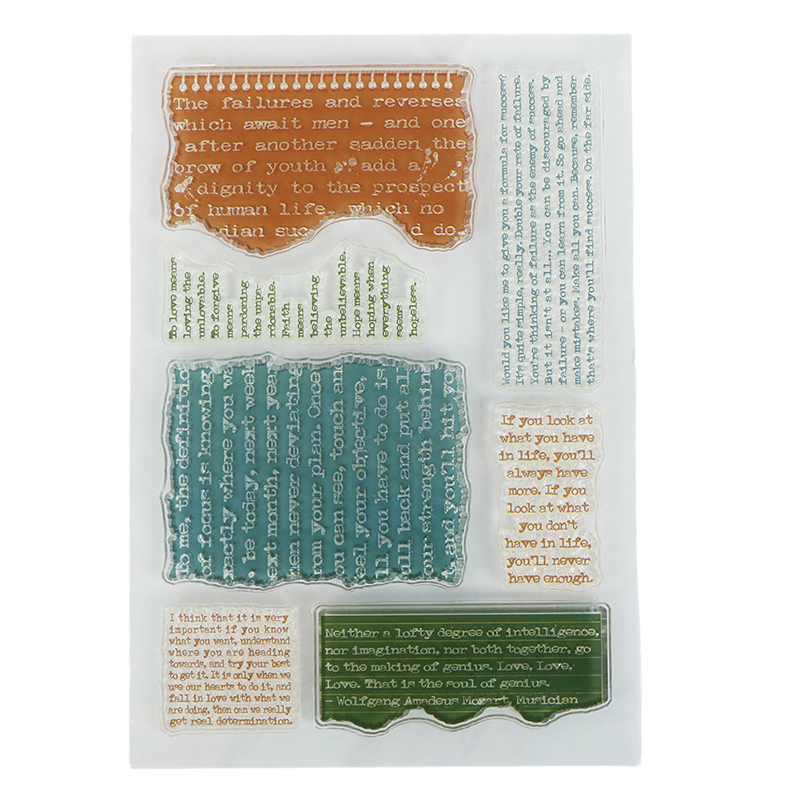 The failures and reverses
which await men – and one
after another sadden the
brow of youth – add a
dignity to the prospect
of human life, which no
dian suc d do.
Would you like me to give you a formula for success?
It's quite simple, really. Double your rate of failure.
You're thinking of failure as the enemy of success.
But it isn't at all... You can be discouraged by
failure – or you can learn from it. So go ahead and
make mistakes. Make all you can. Because, remember
that's where you'll find success. On the far side.
To love means
loving the
unlovable.
To forgive
means
pardoning
the unpa-
rdonable.
Faith
means
believing
the
unbelievable.
Hope means
hoping when
everything
seems
hopeless.
To me, the definitio
of focus is knowing
exactly where you w
be today, next week
next month, next year
hen never deviating
rom your plan. Once
ou can see, touch an
eel your objective,
ll you have to do is
ull back and put all
our strength behin
t and you'll hit yo
If you look at
what you have
in life, you'll
always have
more. If you
look at what
you don't
have in life,
you'll never
have enough.
I think that it is very
important if you know
what you want, understand
where you are heading
towards, and try your best
to get it. It is only when we
use our hearts to do it, and
fall in love with what we
are doing, then can we really
get real determination.
Neither a lofty degree of intelligence,
nor imagination, nor both together, go
to the making of genius. Love, Love,
Love. That is the soul of genius.
– Wolfgang Amadeus Mozart, Musician